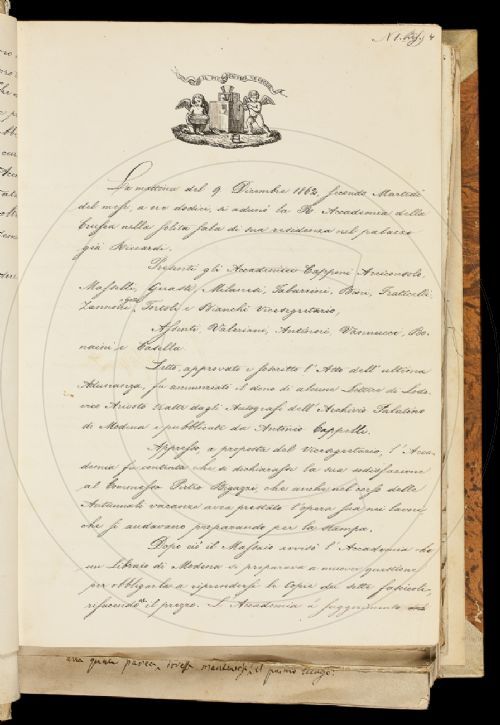 La mattina del 9 Dicembre 1862, secondo Martedì
del mese, a ore dodici, si adunò la R. Accademia della
Crusca nella solita sala di sua residenza nel palazzo
già Riccardi.
Presenti gli Accademici Capponi Arciconsolo,
Guasti, Milanesi, Tabarrini, Bini, Fraticelli,
Zannoni, Tortoli, e Bianchi Vicesegretario,
Assenti, Valeriani, Antinori, Vannucci, Bo-
naini e Casella
Letto, approvato e soscritto l'Atto dell'ultima
Adunanza, fu annunziato il dono di alcune Lettere di Lodo-
vico Ariosto tratte dagli Autografi dell'Archivio Palatino
di Modena e pubblicate da Antonio Cappelli.
Appresso, a proposta del Vicesegretario, l'Acca-
demia fu contenta che si dichiarasse la sua sodisfazione
al Commesso che anche nel corso delle
Autunnali vacanze avea prestato l'opera sua nei lavori,
che si andavano preparando per la stampa.
Dopo ciò il Massaio avvisò l'Accademia che
un Libraio di Modena si preparava a muover questione
per obbligarla a riprendersi le copie de' sette fascicoli,
rifacendo il prezzo. L'Accademia a suggerimento